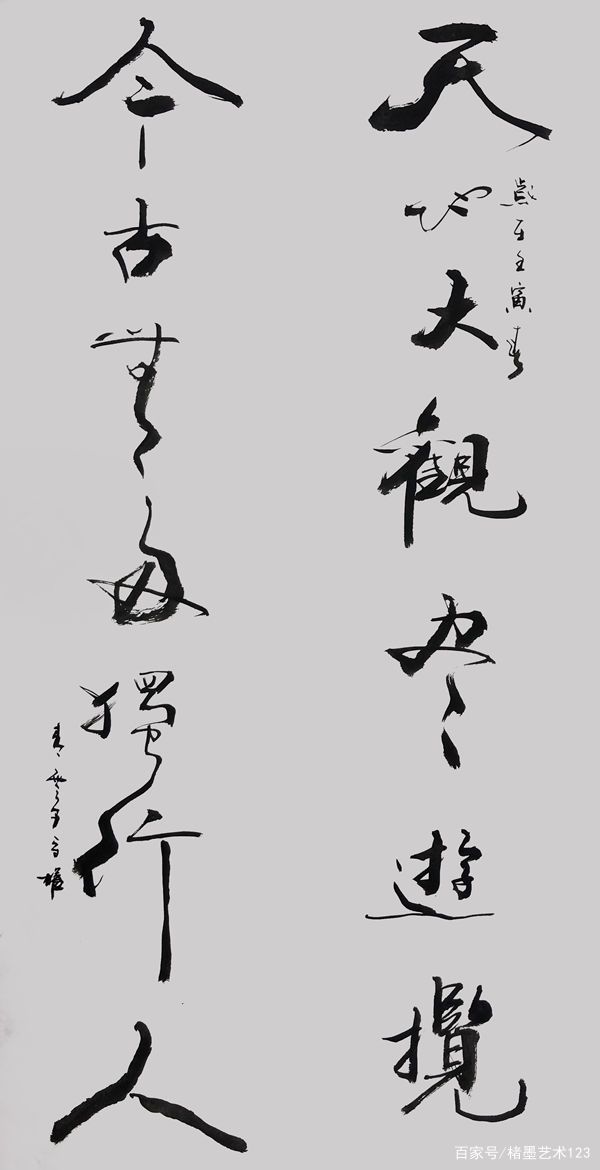 天地大觀尽遊攬
壬寅春
今古無多獨行人
百家号/楮墨艺术123